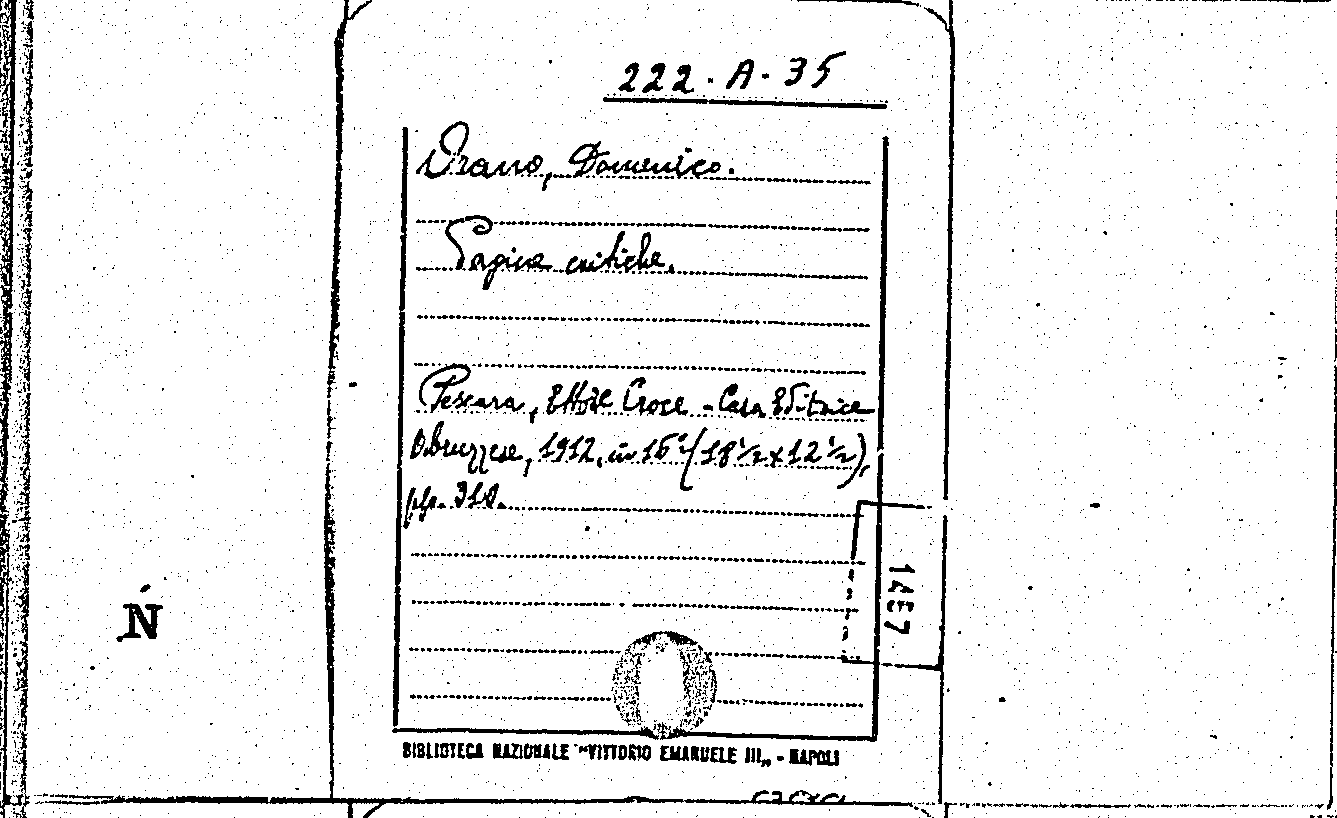 222. A. 35
Orano, Domenico.
Pagine critiche.
Pescara, Ettore Croce - Casa Editrice
Abruzzese, 1912, in 16° (18½ x 12½),
pp. 318.
1457
N
BIBLIOTECA NAZIONALE "VITTORIO EMANUELE III„ - NAPOLI